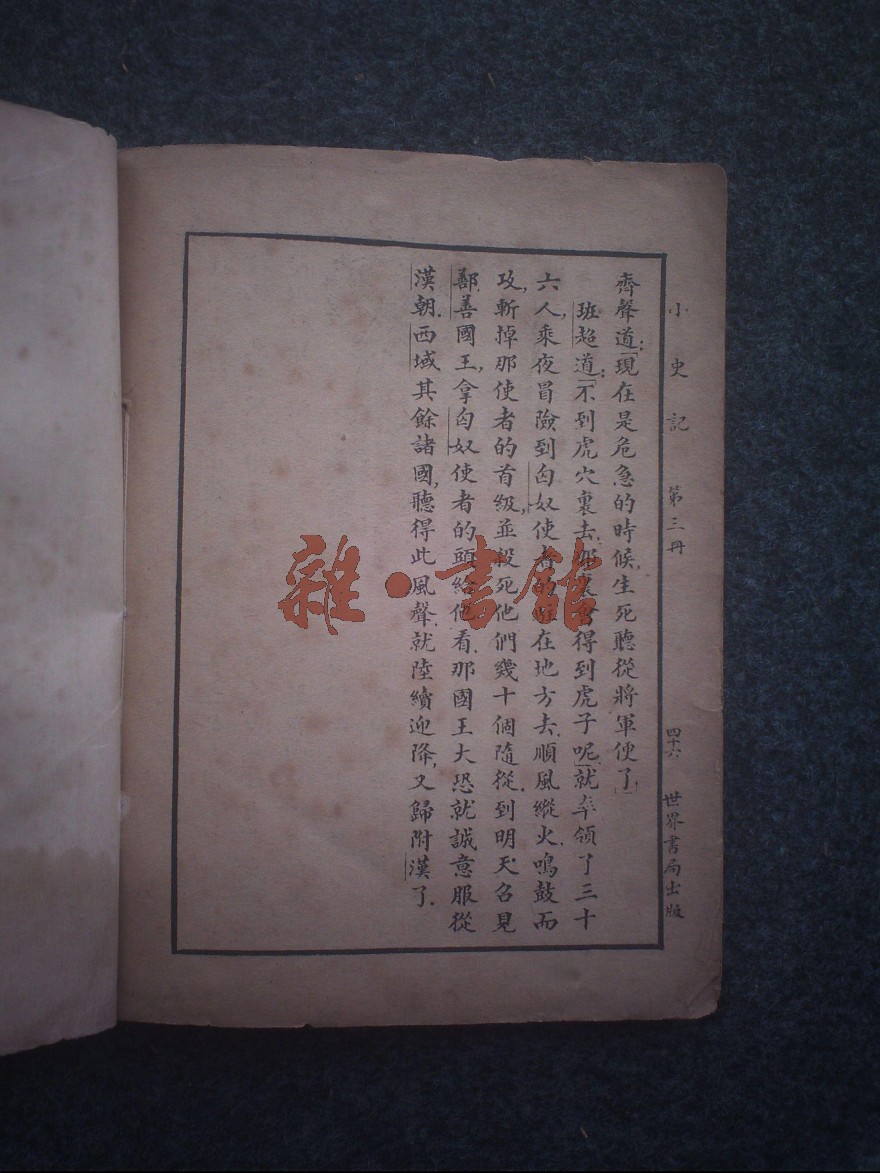 小史記 第三冊 四十六 世界書局出版
齊聲道：「現在是危急的時候，生死聽從將軍便了」
班超道：「不到虎穴裏去，那裏會得到虎子呢」就率領了三十
六人，乘夜冒險到匈奴使者的 在地方去，順風縱火，鳴鼓而
攻，斬掉那使者的首級，並殺死他們幾十個隨從．到明天，召見
鄯善國王，拿匈奴使者的頭給他看．那國王大恐就誠意服從
漢朝．西域其餘諸國，聽得此風聲，就陸續迎降，又歸附漢了．
雜·書館